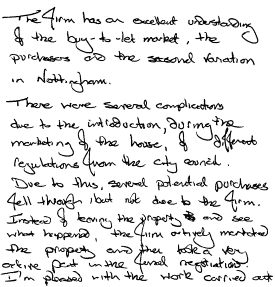 The firm has an excellent understanding
of the buy-to-let market, the
purchasers and the seasonal variation
in Nottingham.
There were several complications
due to the introduction, during the
marketing of the house, of different
regulations from the city council.
Due to this, several potential purchases
fell through, but not due to the firm.
Instead of leaving the property and see
what happened, the firm actively marketed
the property and then took a very
active part in the final negotiations
I'm pleased with the work carried out